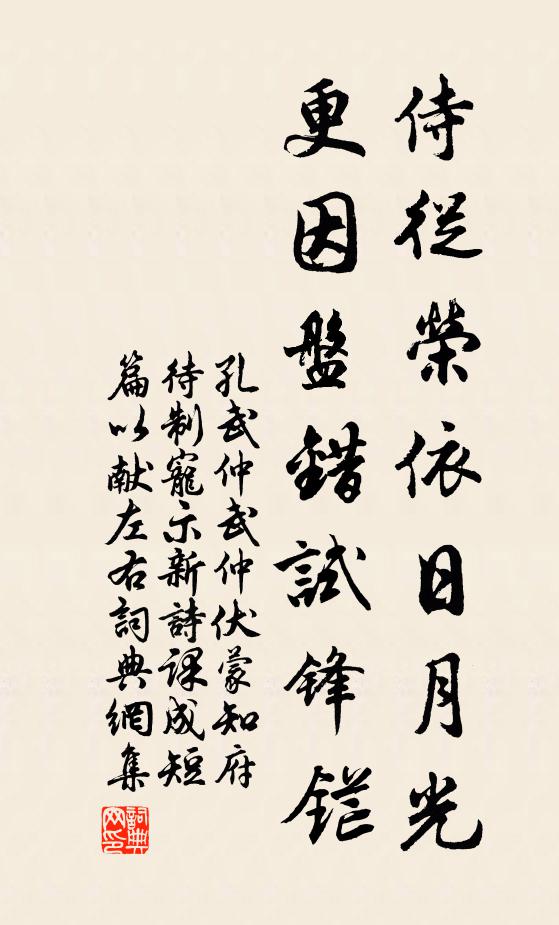 侍從榮依日月光
更因盤錯試鋒鋩
孔武仲武仲伏蒙知府
待制寵示新詩課成短
篇以献左右詞典網集
詞典